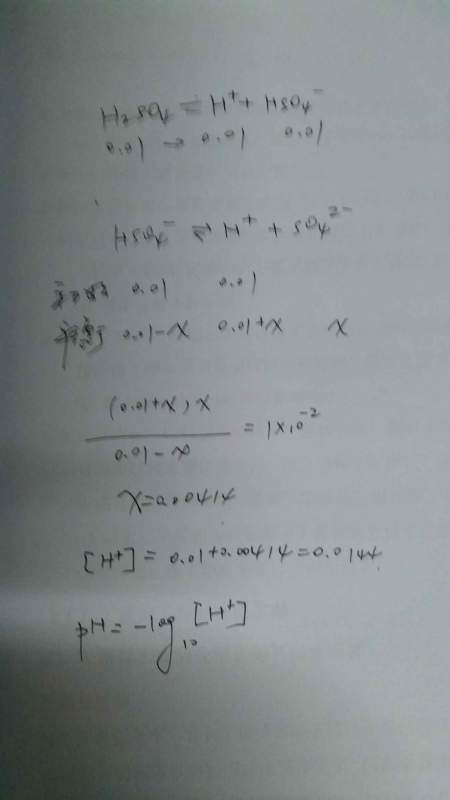 H₂SO₄ = H⁺ + HSO₄⁻
0.01 → 0.01 0.01
HSO₄⁻ ⇌ H⁺ + SO₄²⁻
0.01 0.01
0.01-x 0.01+x x
(0.01+x)x
= 1×10⁻²
0.01-x
x=0.00414
[H⁺] = 0.01+0.00414=0.0144
pH = -log₁₀[H⁺]